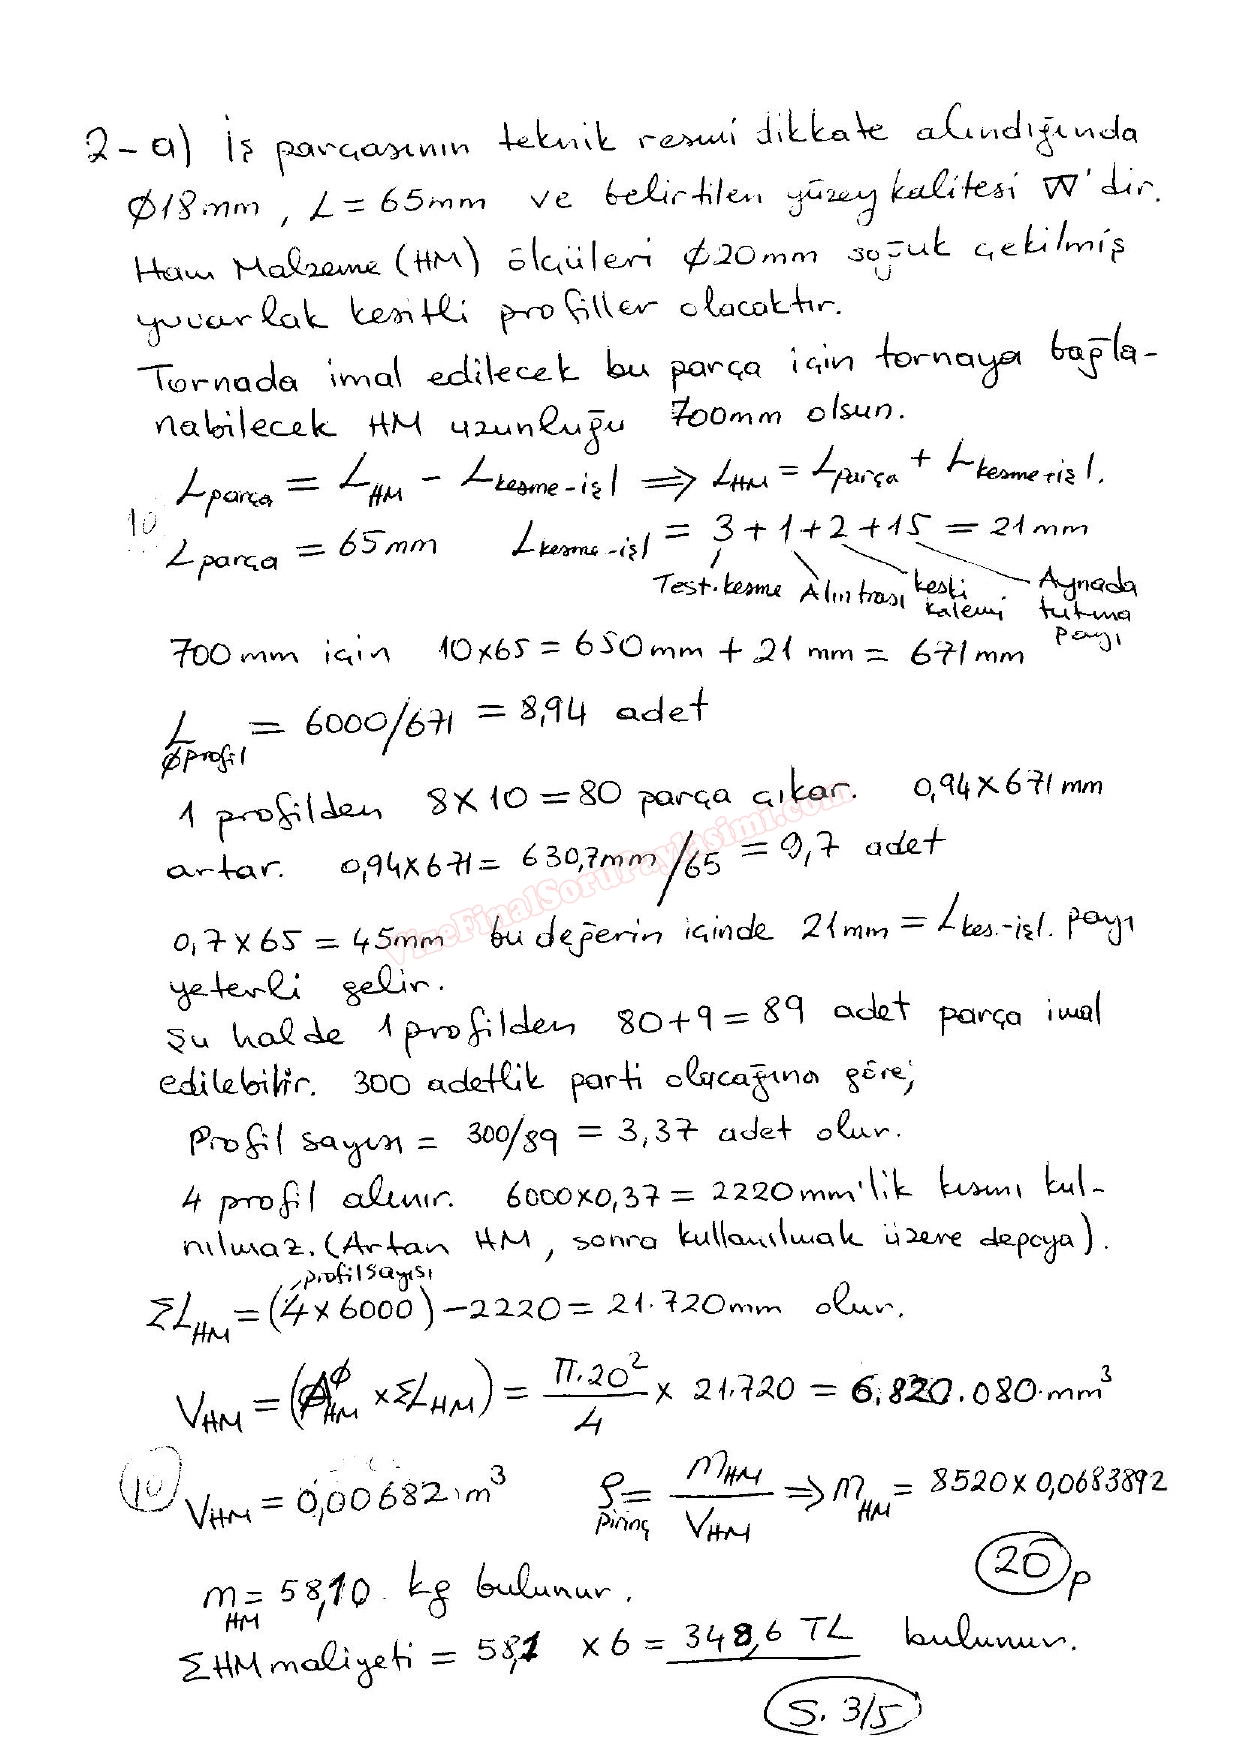 2-a) İş parçasının teknik resmi dikkate alındığında
Ø18mm, L=65mm ve belirtilen yüzey kalitesi ∇∇'dir.
Ham Malzeme (HM) ölçüleri Ø20mm soğuk çekilmiş
yuvarlak kesitli profiller olacaktır.
Tornada imal edilecek bu parça için tornaya bağla-
nabilecek HM uzunluğu 700mm olsun.
Lparça = LHM - Lkesme-işl ⇒ LHM = Lparça + Lkesme+işl.
10
Lparça = 65mm Lkesme-işl = 3+1+2+15 = 21mm
Test.kesme Alın trası keski kalemi Aynada tutma payı
700mm için 10x65 = 650mm + 21mm = 671mm
LØprofil = 6000/671 = 8,94 adet
1 profilden 8x10 = 80 parça çıkar. 0,94x671mm
artar. 0,94x671 = 630,7mm/65 = 9,7 adet
0,7x65 = 45mm bu değerin içinde 21mm = Lkes.-işl. payı
yeterli gelir.
Şu halde 1 profilden 80+9 = 89 adet parça imal
edilebilir. 300 adetlik parti olacağına göre;
Profil sayısı = 300/89 = 3,37 adet olur.
4 profil alınır. 6000x0,37 = 2220mm'lik kısmı kul-
nılmaz. (Artan HM, sonra kullanılmak üzere depoya).
profil sayısı
ΣLHM = (4x6000) - 2220 = 21.720mm olur.
VHM = (AØHM x ΣLHM) = π.20²/4 x 21.720 = 6.820.080.mm³
10
VHM = 0,00682.m³ ρpirinç = mHM/VHM ⇒ mHM = 8520x0,0683892
20 p
mHM = 58,10 kg bulunur.
ΣHM maliyeti = 58,1 x6 = 348,6 TL bulunur.
S. 3/5
VizeFinalSoruPaylasimi.com